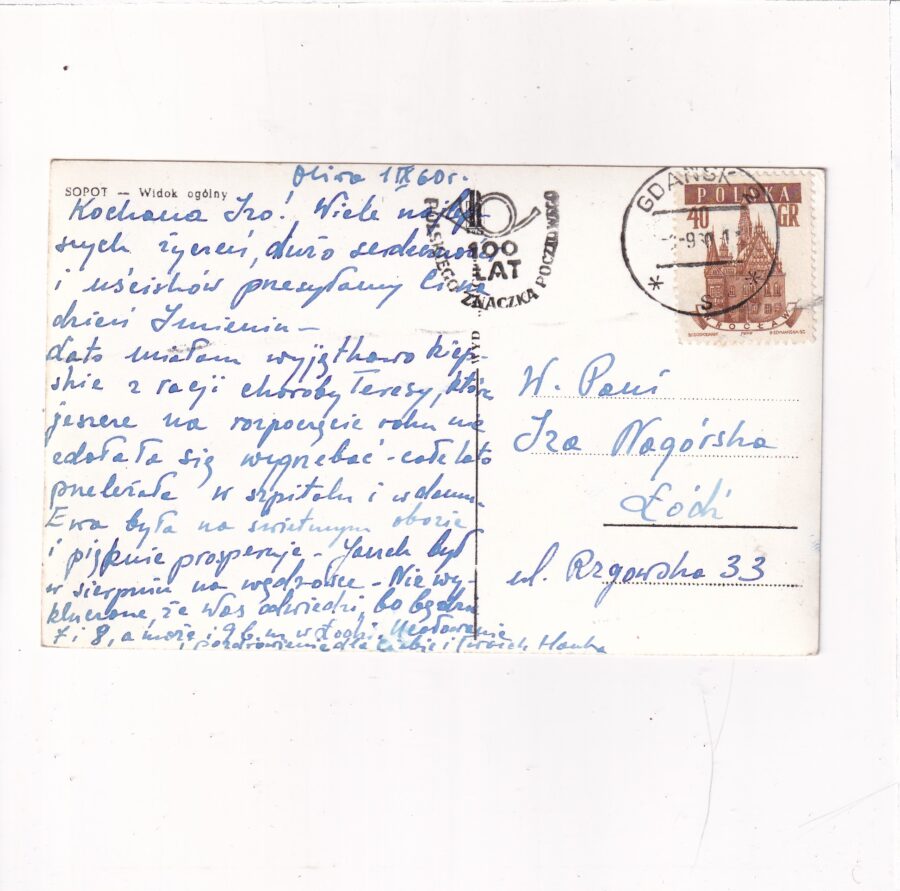 SOPOT — Widok ogólny
Oliwa 1 IX 60 r.
Kochana Izo! Wiele milszych
życzeń, dużo serdeczności
i uścisków przesyłamy Ci w
dzień Imienin —
Lato miałam wyjątkowo kiep-
skie z racji choroby Teresy, która
jeszcze na rozpoczęcie roku nie
zdołała się wygrzebać - całe lato
przeleżała w szpitalu i w domu.
Ewa była na świetnym obozie
i pięknie prosperuje - Janek był
w sierpniu na wędrówce - Nie wy-
kluczone, że Was odwiedzi, bo będzie
7 i 8, a może i 9 b. m. w Łodzi. Ucałowania
i pozdrowienia dla Ciebie i Twoich Hanka
100
LAT
POLSKIEGO ZNACZKA POCZTOWEGO
WYD
GDAŃSK
-9 60
S
POLSKA
40 GR
WROCŁAW
W. Pani
Iza Nagórska
Łódź
ul. Rzgowska 33